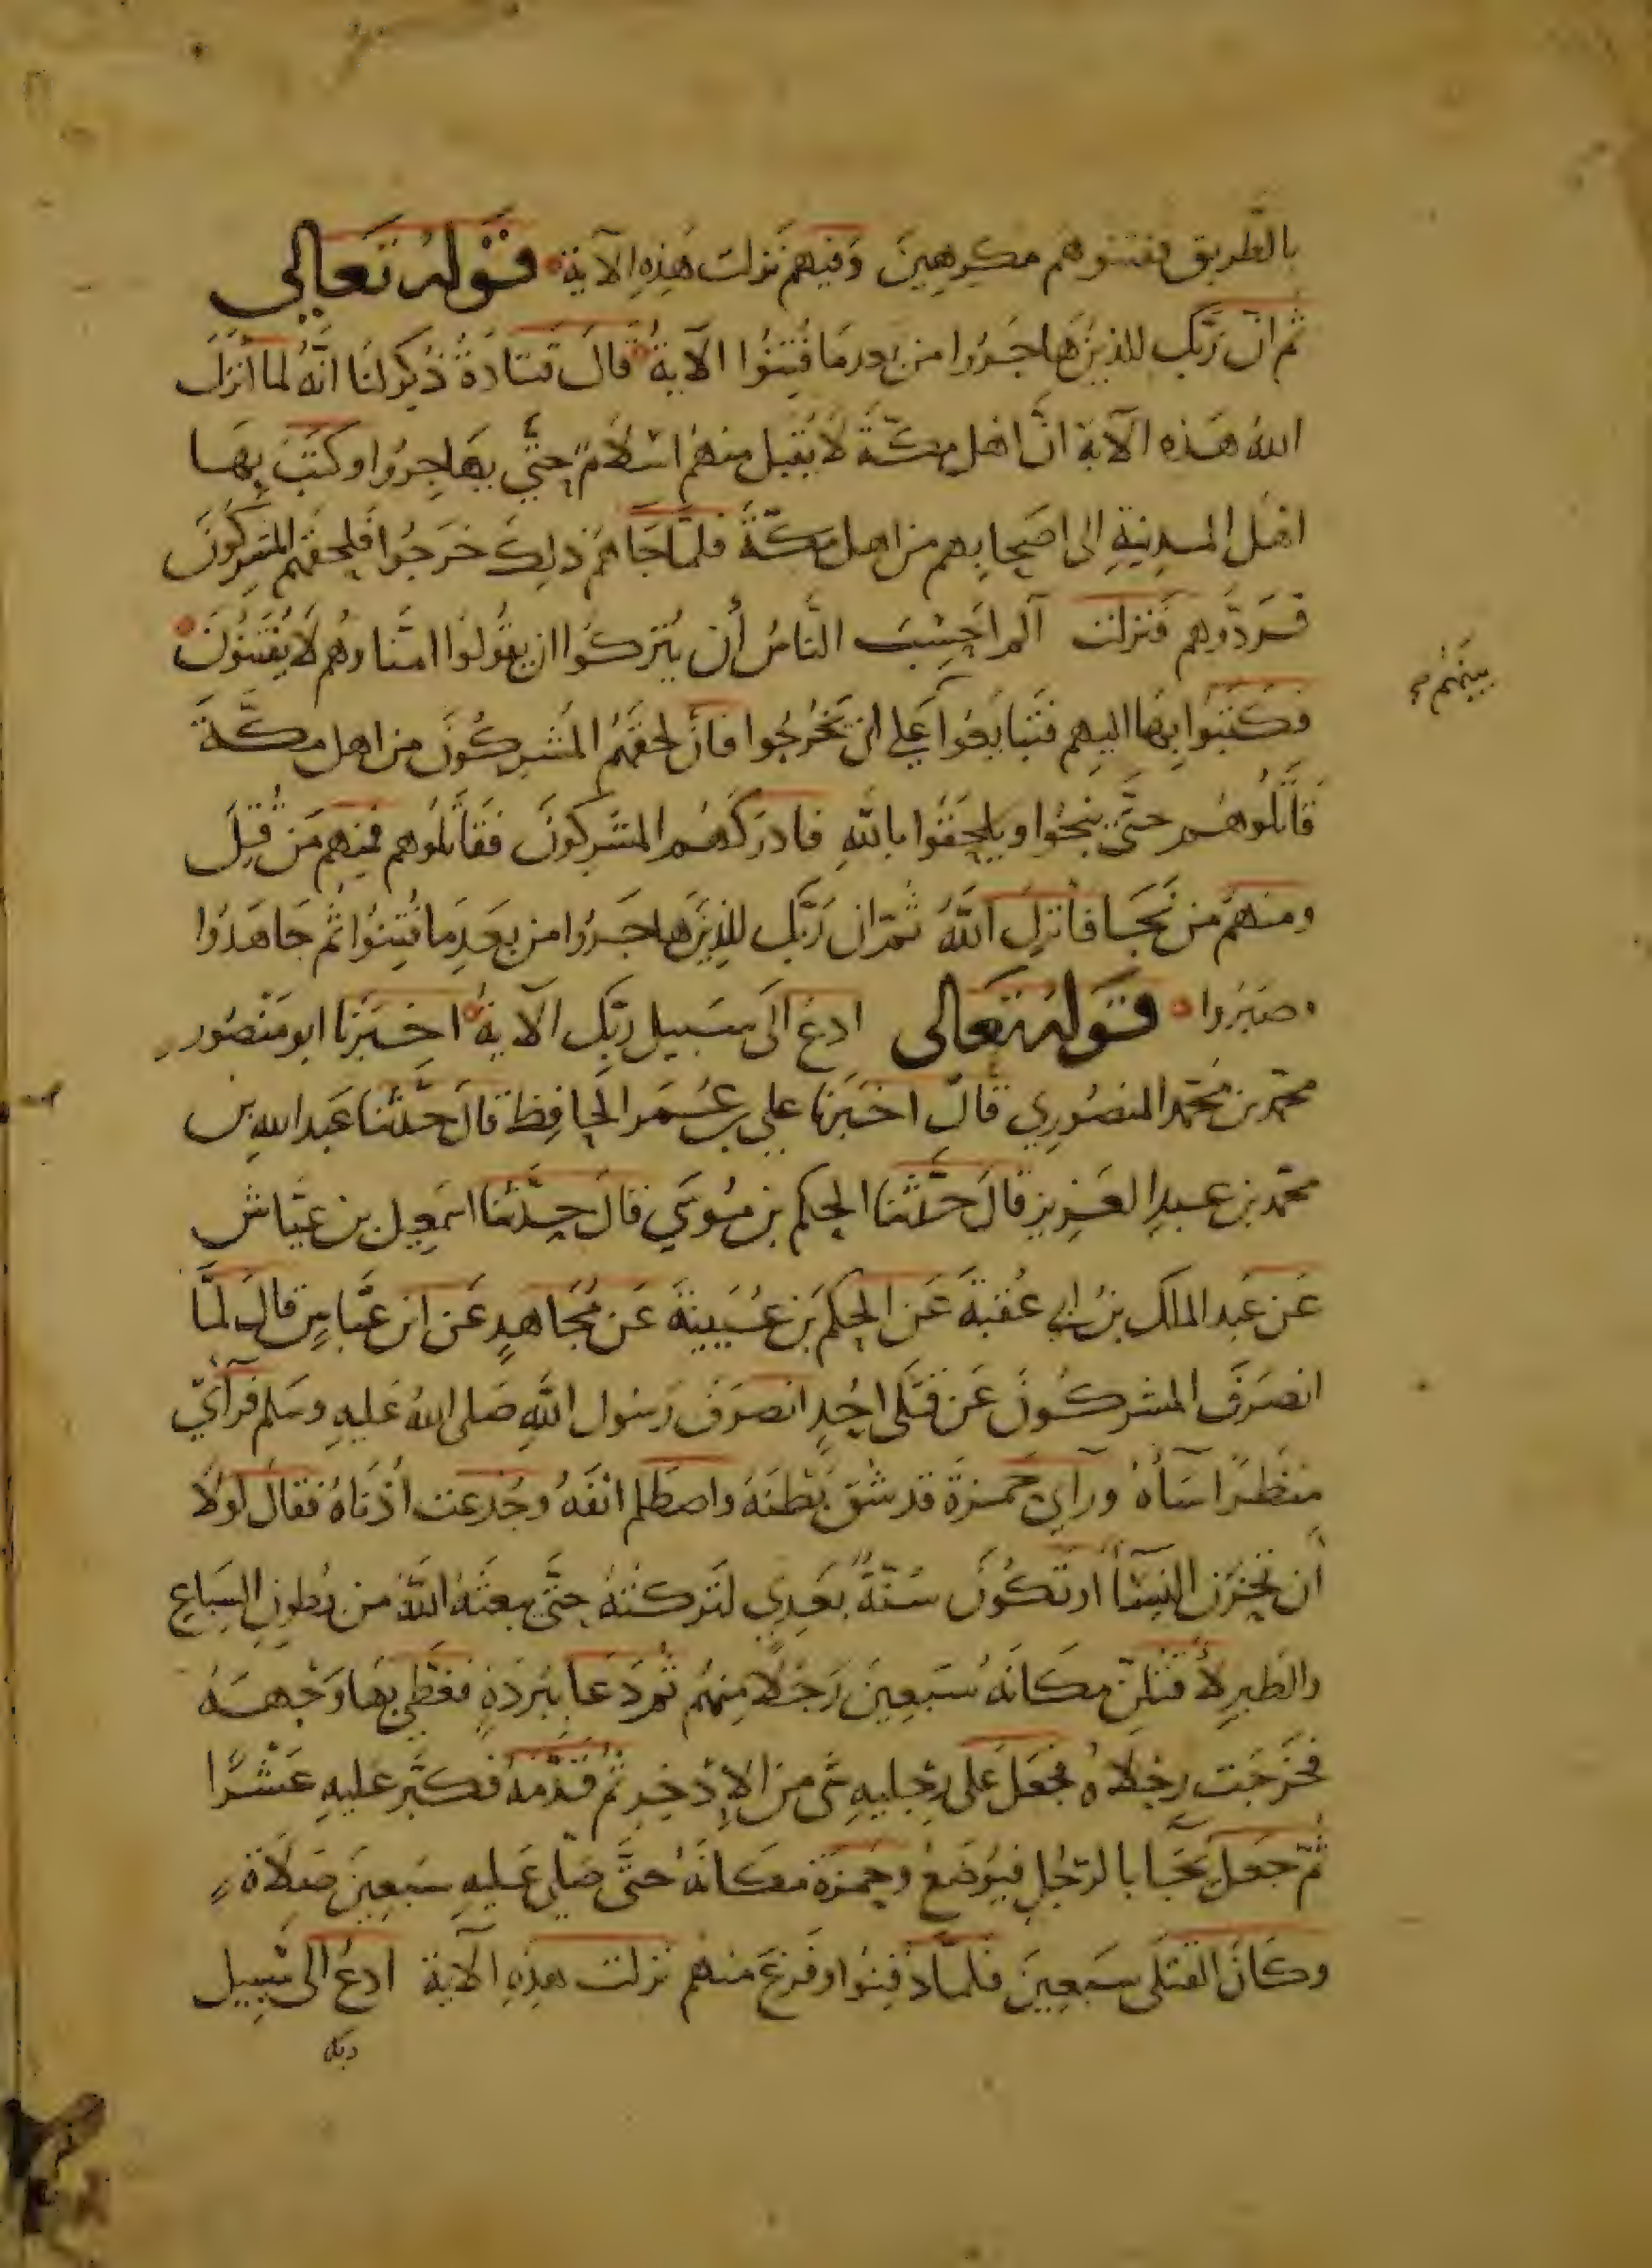 بالطريق ففتنوهم مكرهين وفيهم نزلت هذه الآية قوله تعالى
ثم ان ربك للذين هاجروا من بعد ما فتنوا الآية قال قتادة ذكر لنا انه لما انزل
الله هذه الآية ان اهل مكة لا يقبل منهم اسلام حتى يهاجروا وكتب بها
اهل المدينة الى اصحابهم من اهل مكة فلما جاءهم ذلك خرجوا فلحقهم المشركون
فردوهم فنزلت الم احسب الناس أن يتركوا ان يقولوا امنا وهم لا يفتنون
فكتبوا بها اليهم فتبايعوا على ان يخرجوا فان لحقهم المشركون من اهل مكة
قاتلوهم حتى ينجوا ويلحقوا بالله فادركهم المشركون فقاتلوهم فمنهم من قتل
ومنهم من نجا فانزل الله ثم ان ربك للذين هاجروا من بعد ما فتنوا ثم جاهدوا
وصبروا قوله تعالى ادع الى سبيل ربك الآية اخبرنا ابو منصور
محمد بن محمد المنصوري قال اخبرنا علي بن عمر الحافظ قال حدثنا عبد الله بن
محمد بن عبد العزيز قال حدثنا الحكم بن موسى قال حدثنا اسمعيل بن عياش
عن عبد الملك بن ابي عقبة عن الحكم بن عيينة عن مجاهد عن ابن عباس قال لما
انصرف المشركون عن قتلى احد انصرف رسول الله صلى الله عليه وسلم فرآى
منظرا سآه ورآى حمزة قد شق بطنه واصطلم انفه وجدعت أذناه فقال لولا
أن تحزن النسآ او تكون سنة بعدي لتركته حتى يبعثه الله من بطون السباع
والطير لأقتلن مكانه سبعين رجلا منهم ثم دعا ببردة فغطى بها وجهه
فخرجت رجلاه فجعل على رجليه شى من الإذخر ثم قدمه فكبر عليه عشرا
ثم جعل يجا بالرجل فيوضع وحمزة مكانه حتى صلى عليه سبعين صلاة
وكان القتلى سبعين فلما دفنوا وفرغ منهم نزلت هذه الآية ادع الى سبيل
ربك
بينهم